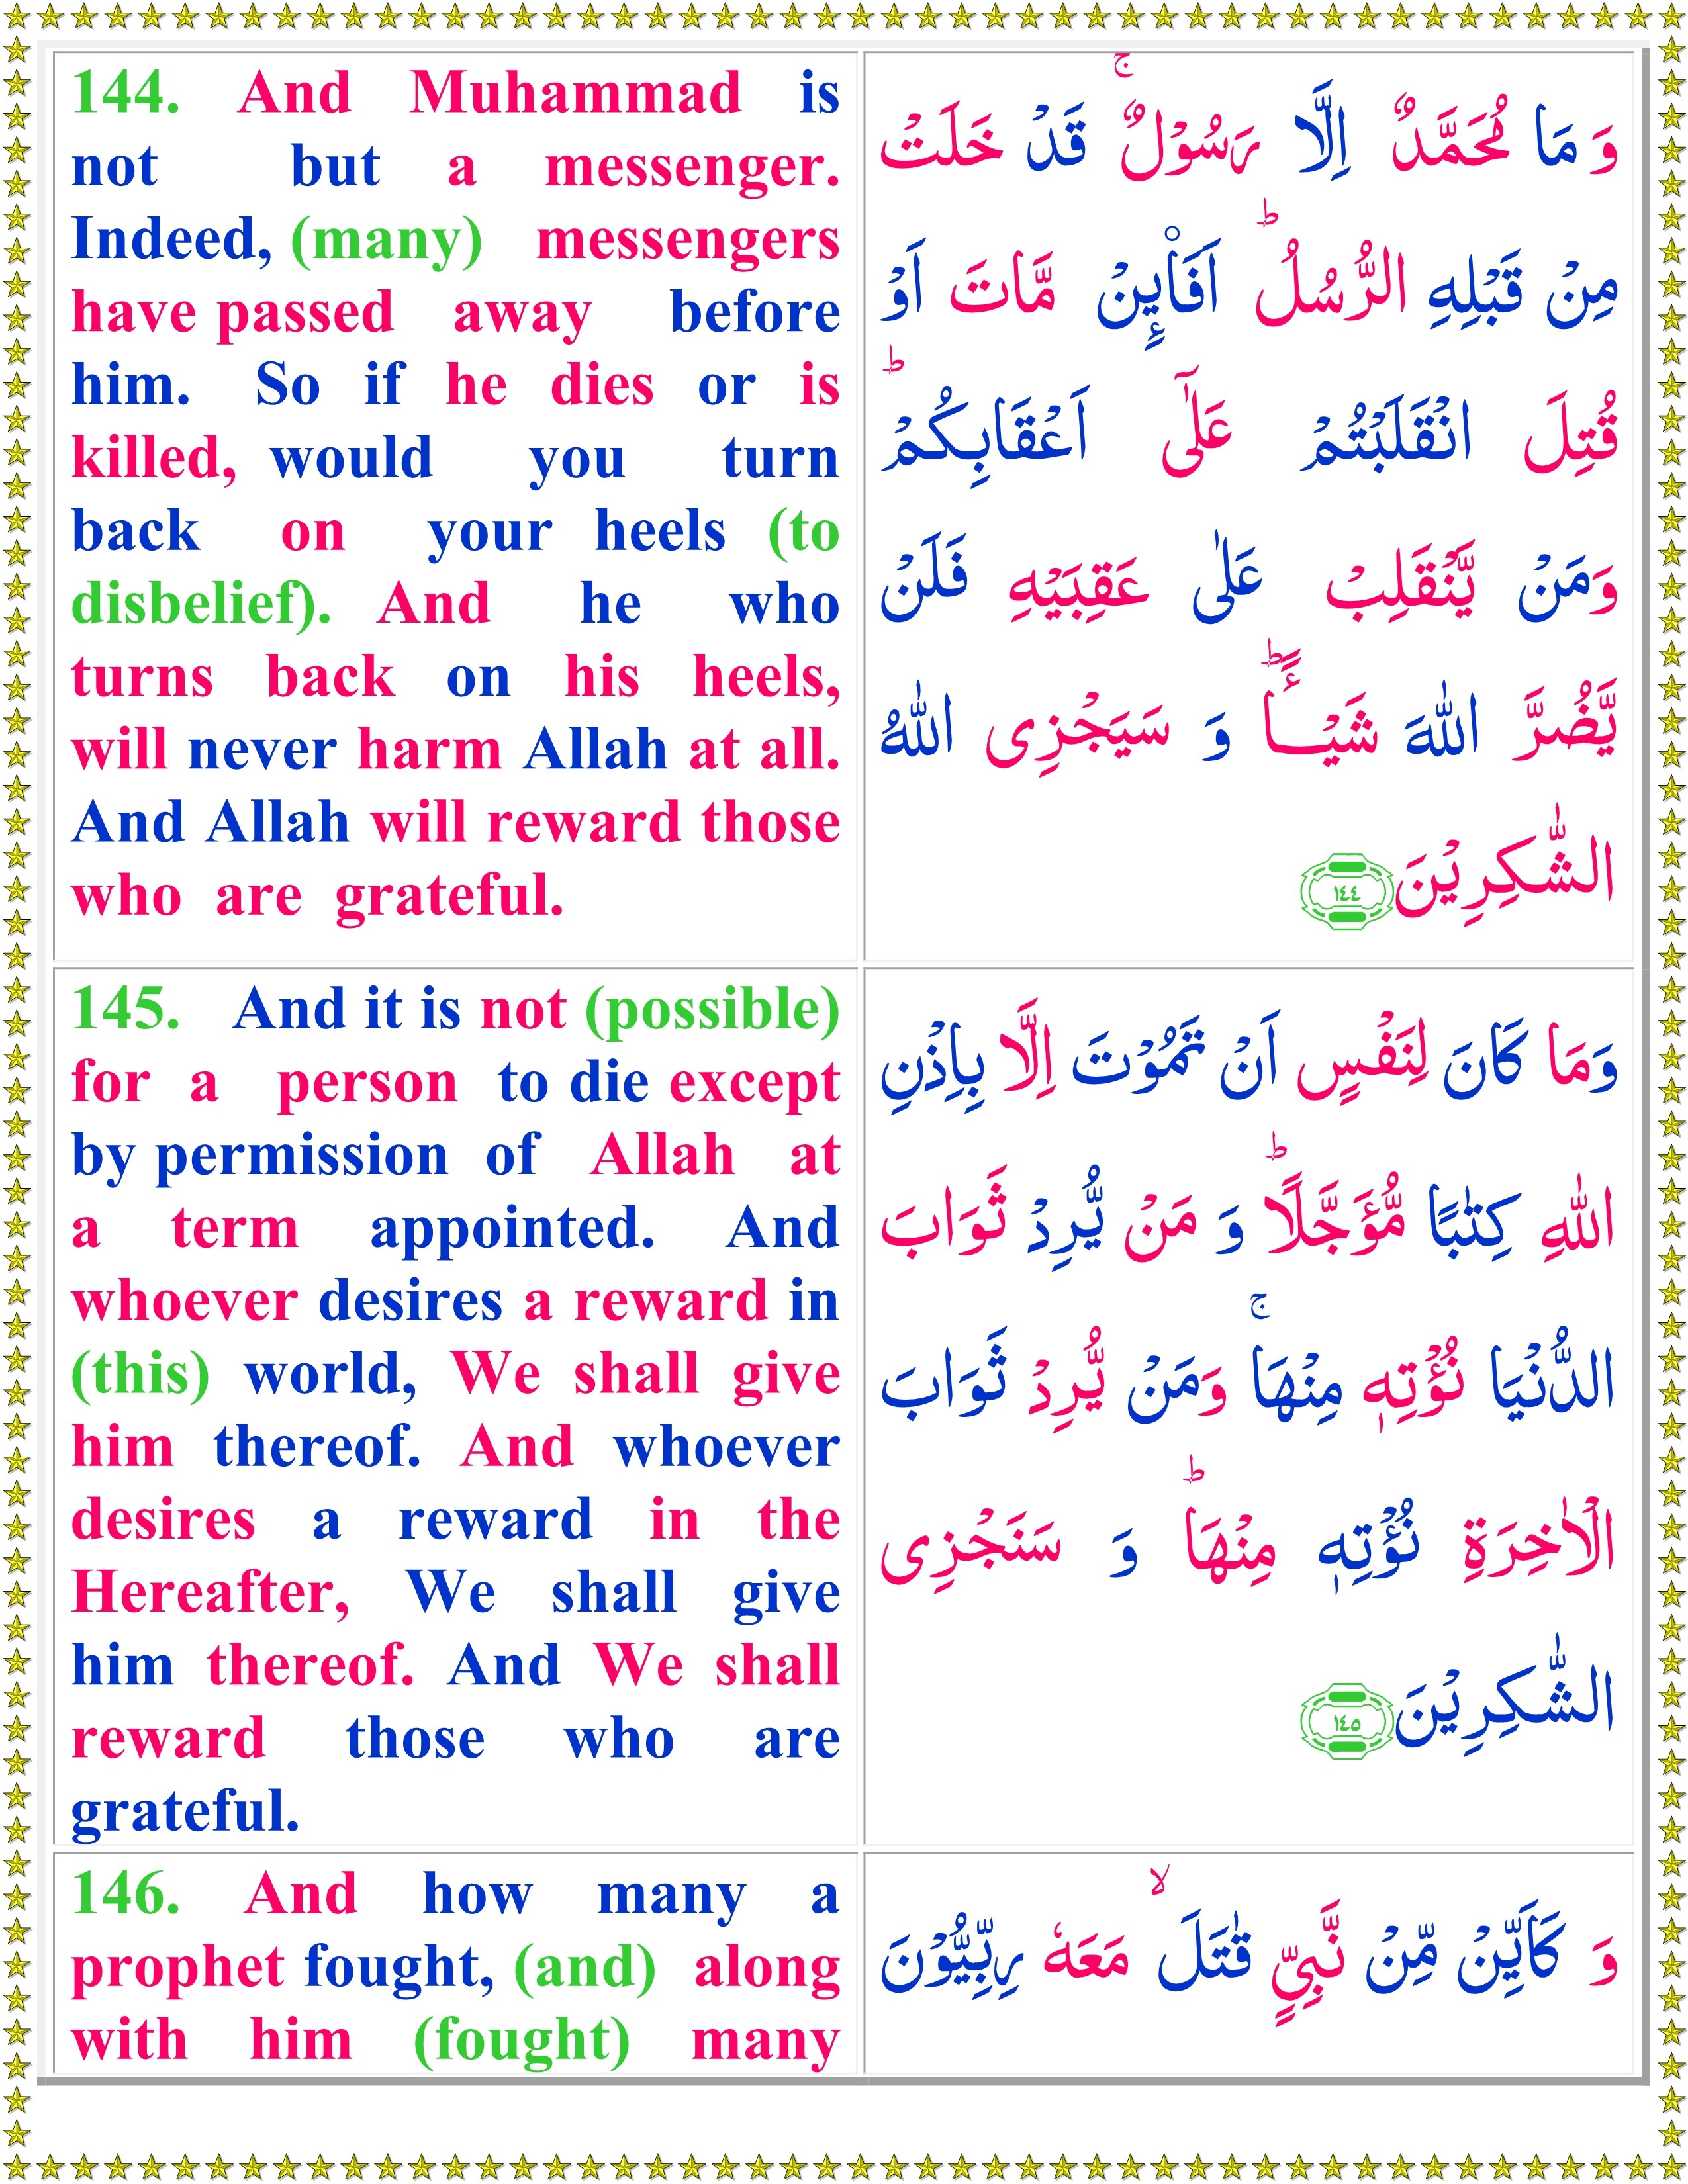 144. And Muhammad is
not but a messenger.
Indeed, (many) messengers
have passed away before
him. So if he dies or is
killed, would you turn
back on your heels (to
disbelief). And he who
turns back on his heels,
will never harm Allah at all.
And Allah will reward those
who are grateful.
وَ مَا مُحَمَّدٌ اِلَّا رَسُوْلٌ ۚ قَدْ خَلَتْ
مِنْ قَبْلِهِ الرُّسُلُ ؕ اَفَا۟ىِٕنْ مَّاتَ اَوْ
قُتِلَ انْقَلَبْتُمْ عَلٰۤى اَعْقَابِكُمْ ؕ
وَمَنْ يَّنْقَلِبْ عَلٰى عَقِبَيْهِ فَلَنْ
يَّضُرَّ اللّٰهَ شَيْـًٔا ؕ وَ سَيَجْزِى اللّٰهُ
الشّٰكِرِيْنَ ١٤٤
145. And it is not (possible)
for a person to die except
by permission of Allah at
a term appointed. And
whoever desires a reward in
(this) world, We shall give
him thereof. And whoever
desires a reward in the
Hereafter, We shall give
him thereof. And We shall
reward those who are
grateful.
وَمَا كَانَ لِنَفْسٍ اَنْ تَمُوْتَ اِلَّا بِاِذْنِ
اللّٰهِ كِتٰبًا مُّؤَجَّلًا ؕ وَ مَنْ يُّرِدْ ثَوَابَ
الدُّنْيَا نُؤْتِهٖ مِنْهَا ۚ وَمَنْ يُّرِدْ ثَوَابَ
الْاٰخِرَةِ نُؤْتِهٖ مِنْهَا ؕ وَ سَنَجْزِى
الشّٰكِرِيْنَ ١٤٥
146. And how many a
prophet fought, (and) along
with him (fought) many
وَ كَاَيِّنْ مِّنْ نَّبِىٍّ قٰتَلَ ۙ مَعَهٗ رِبِّيُّوْنَ